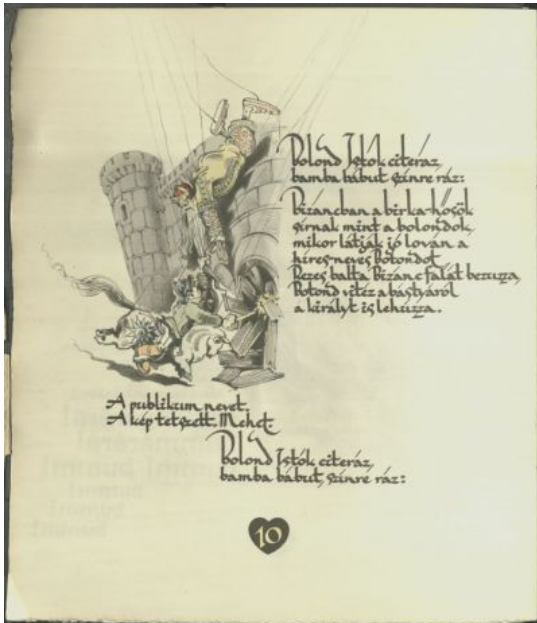 Bolond Istók citeráz,
bamba bábut szinre ráz:
Bizáncban a birka-hősök
sirnak mint a bolondok,
mikor látják jó lován a
hires-neves Botondot.
Rezes balta Bizánc falát bezuzza,
Botond vitéz a bástyáról
a királyt is lehuzza.
A publikum nevet.
A kép tetszett. Mehet.
Bolond Istók citeráz,
bamba bábut, szinre ráz:
10